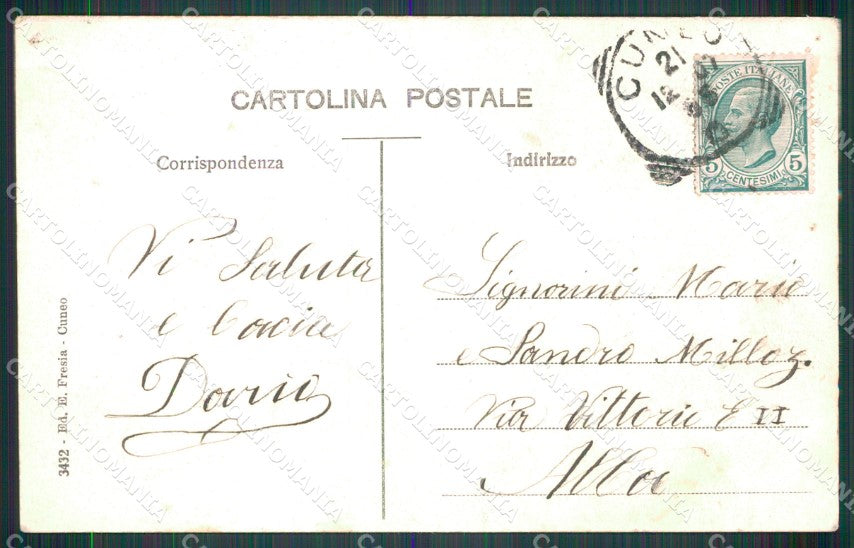 CARTOLINA POSTALE
Corrispondenza
Indirizzo
CUNEO
21
12 07
POSTE ITALIANE
5 CENTESIMI 5
Vi Saluta
e bacia
Dario
Signorini Mario
e Sandro Milloz.
Via Vittorio E II
Alba
3432 - Ed. E. Fresia - Cuneo
CARTOLINOMANIA